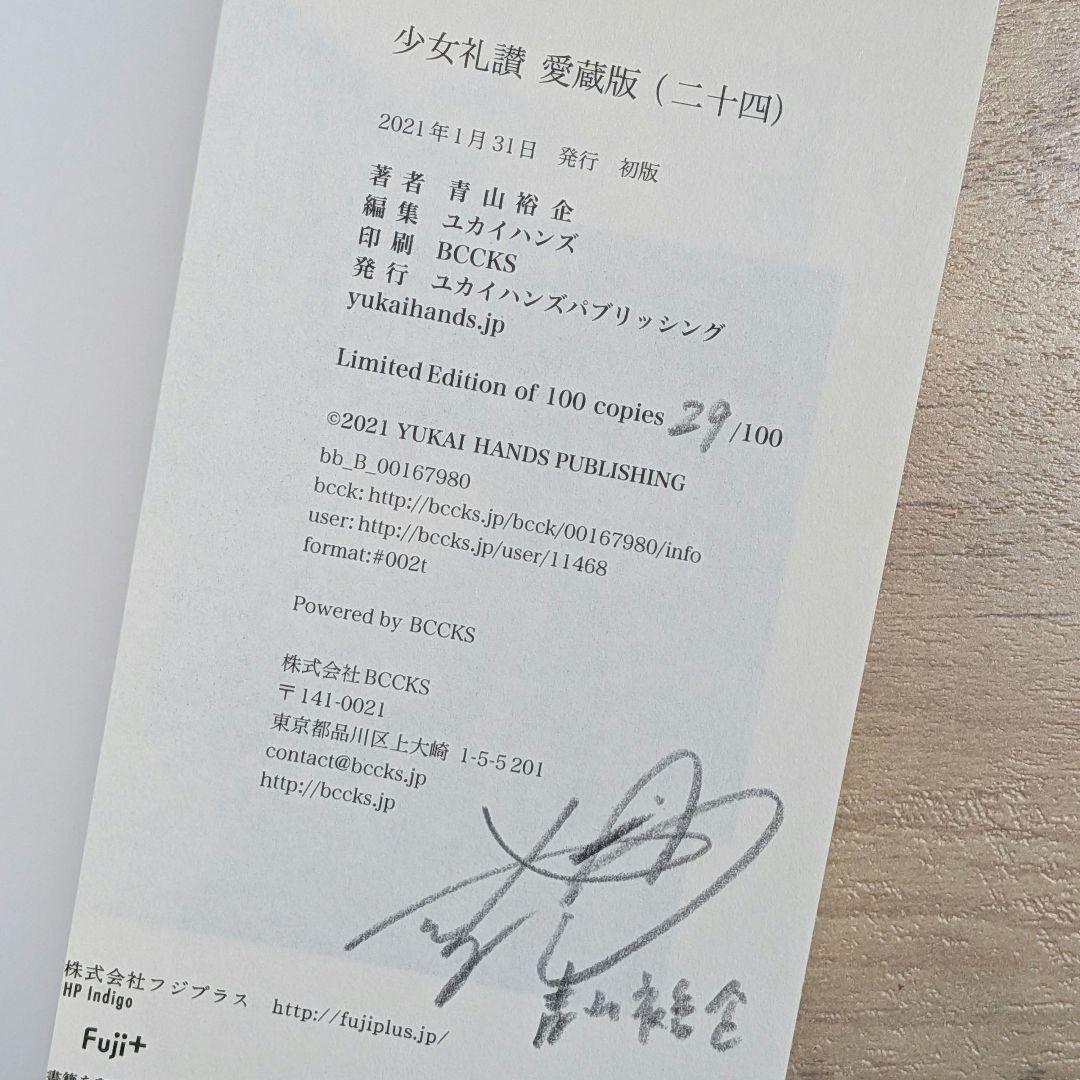 少女礼讃 愛蔵版（二十四）
2021年1月31日 発行 初版
著者 青山裕企
編集 ユカイハンズ
印刷 BCCKS
発行 ユカイハンズパブリッシング
yukaihands.jp
Limited Edition of 100 copies 29/100
©2021 YUKAI HANDS PUBLISHING
bb_B_00167980
bcck: http://bccks.jp/bcck/00167980/info
user: http://bccks.jp/user/11468
format:#002t
Powered by BCCKS
株式会社BCCKS
〒141-0021
東京都品川区上大崎 1-5-5 201
contact@bccks.jp
http://bccks.jp
青山裕企
株式会社フジプラス http://fujiplus.jp/
HP Indigo
Fuji+